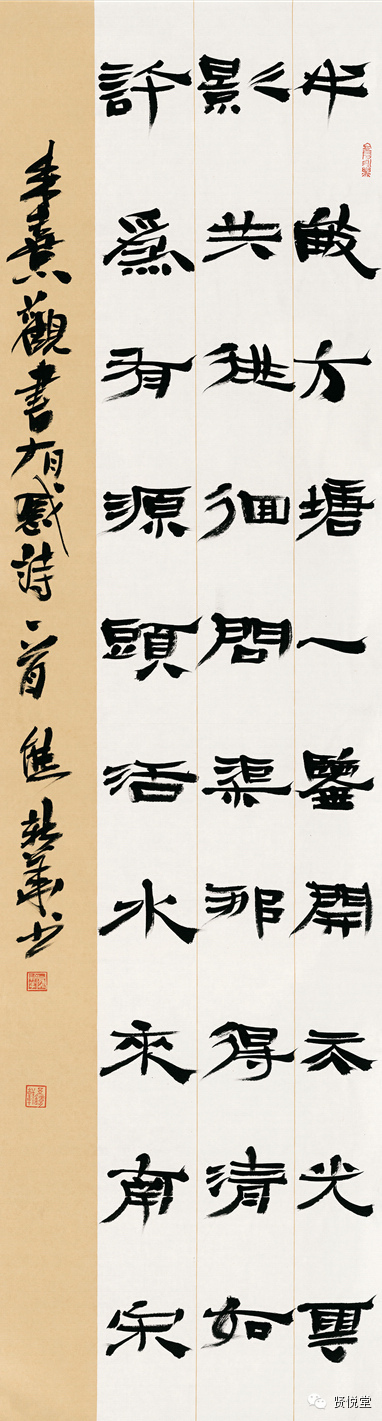 半畝方塘一鑒開天光雲
影共徘徊問渠那得清如
許爲有源頭活水來南宋
朱熹觀書有感詩一首 熊華书
贤悦堂